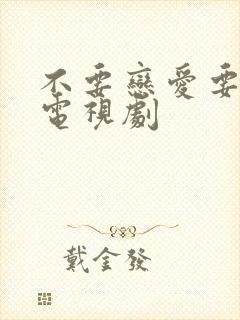 不要戀愛要
電視劇
戴金發